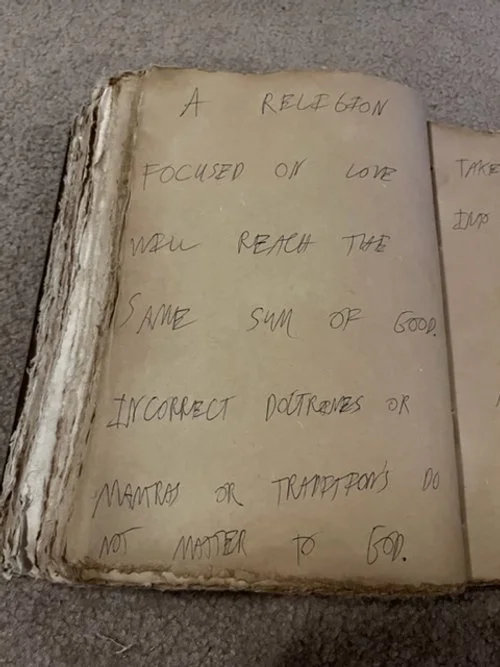 A RELIGION
FOCUSED ON LOVE
WILL REACH THE
SAME SUM OF GOOD.
INCORRECT DOCTRINES OR
MANTRAS OR TRADITION'S DO
NOT MATTER TO GOD.
TAKE
INTO